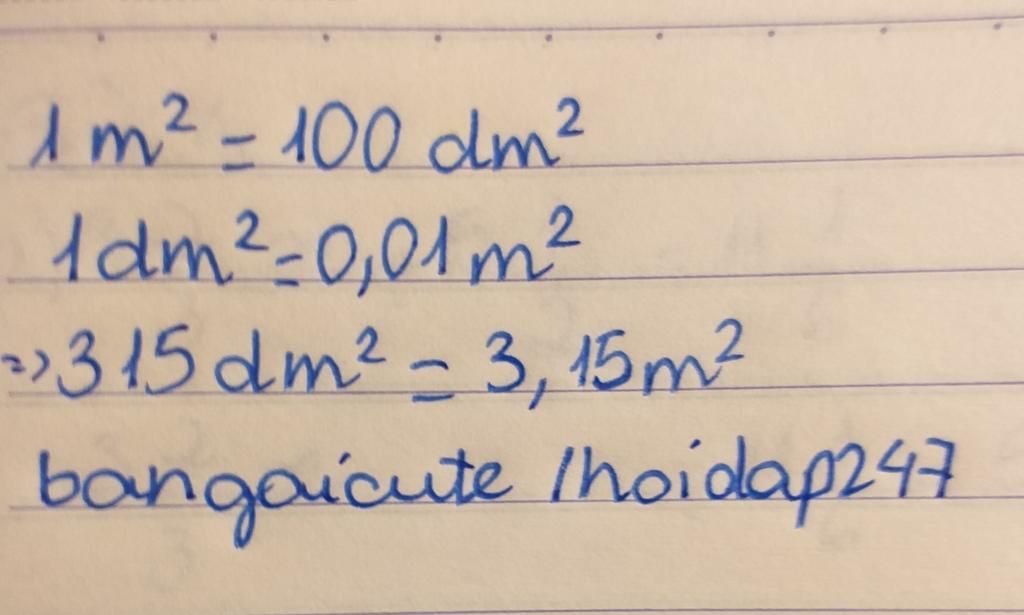 1 m² = 100 dm²
1dm² = 0,01m²
=> 315 dm² = 3,15m²
bangaicute /hoidap247